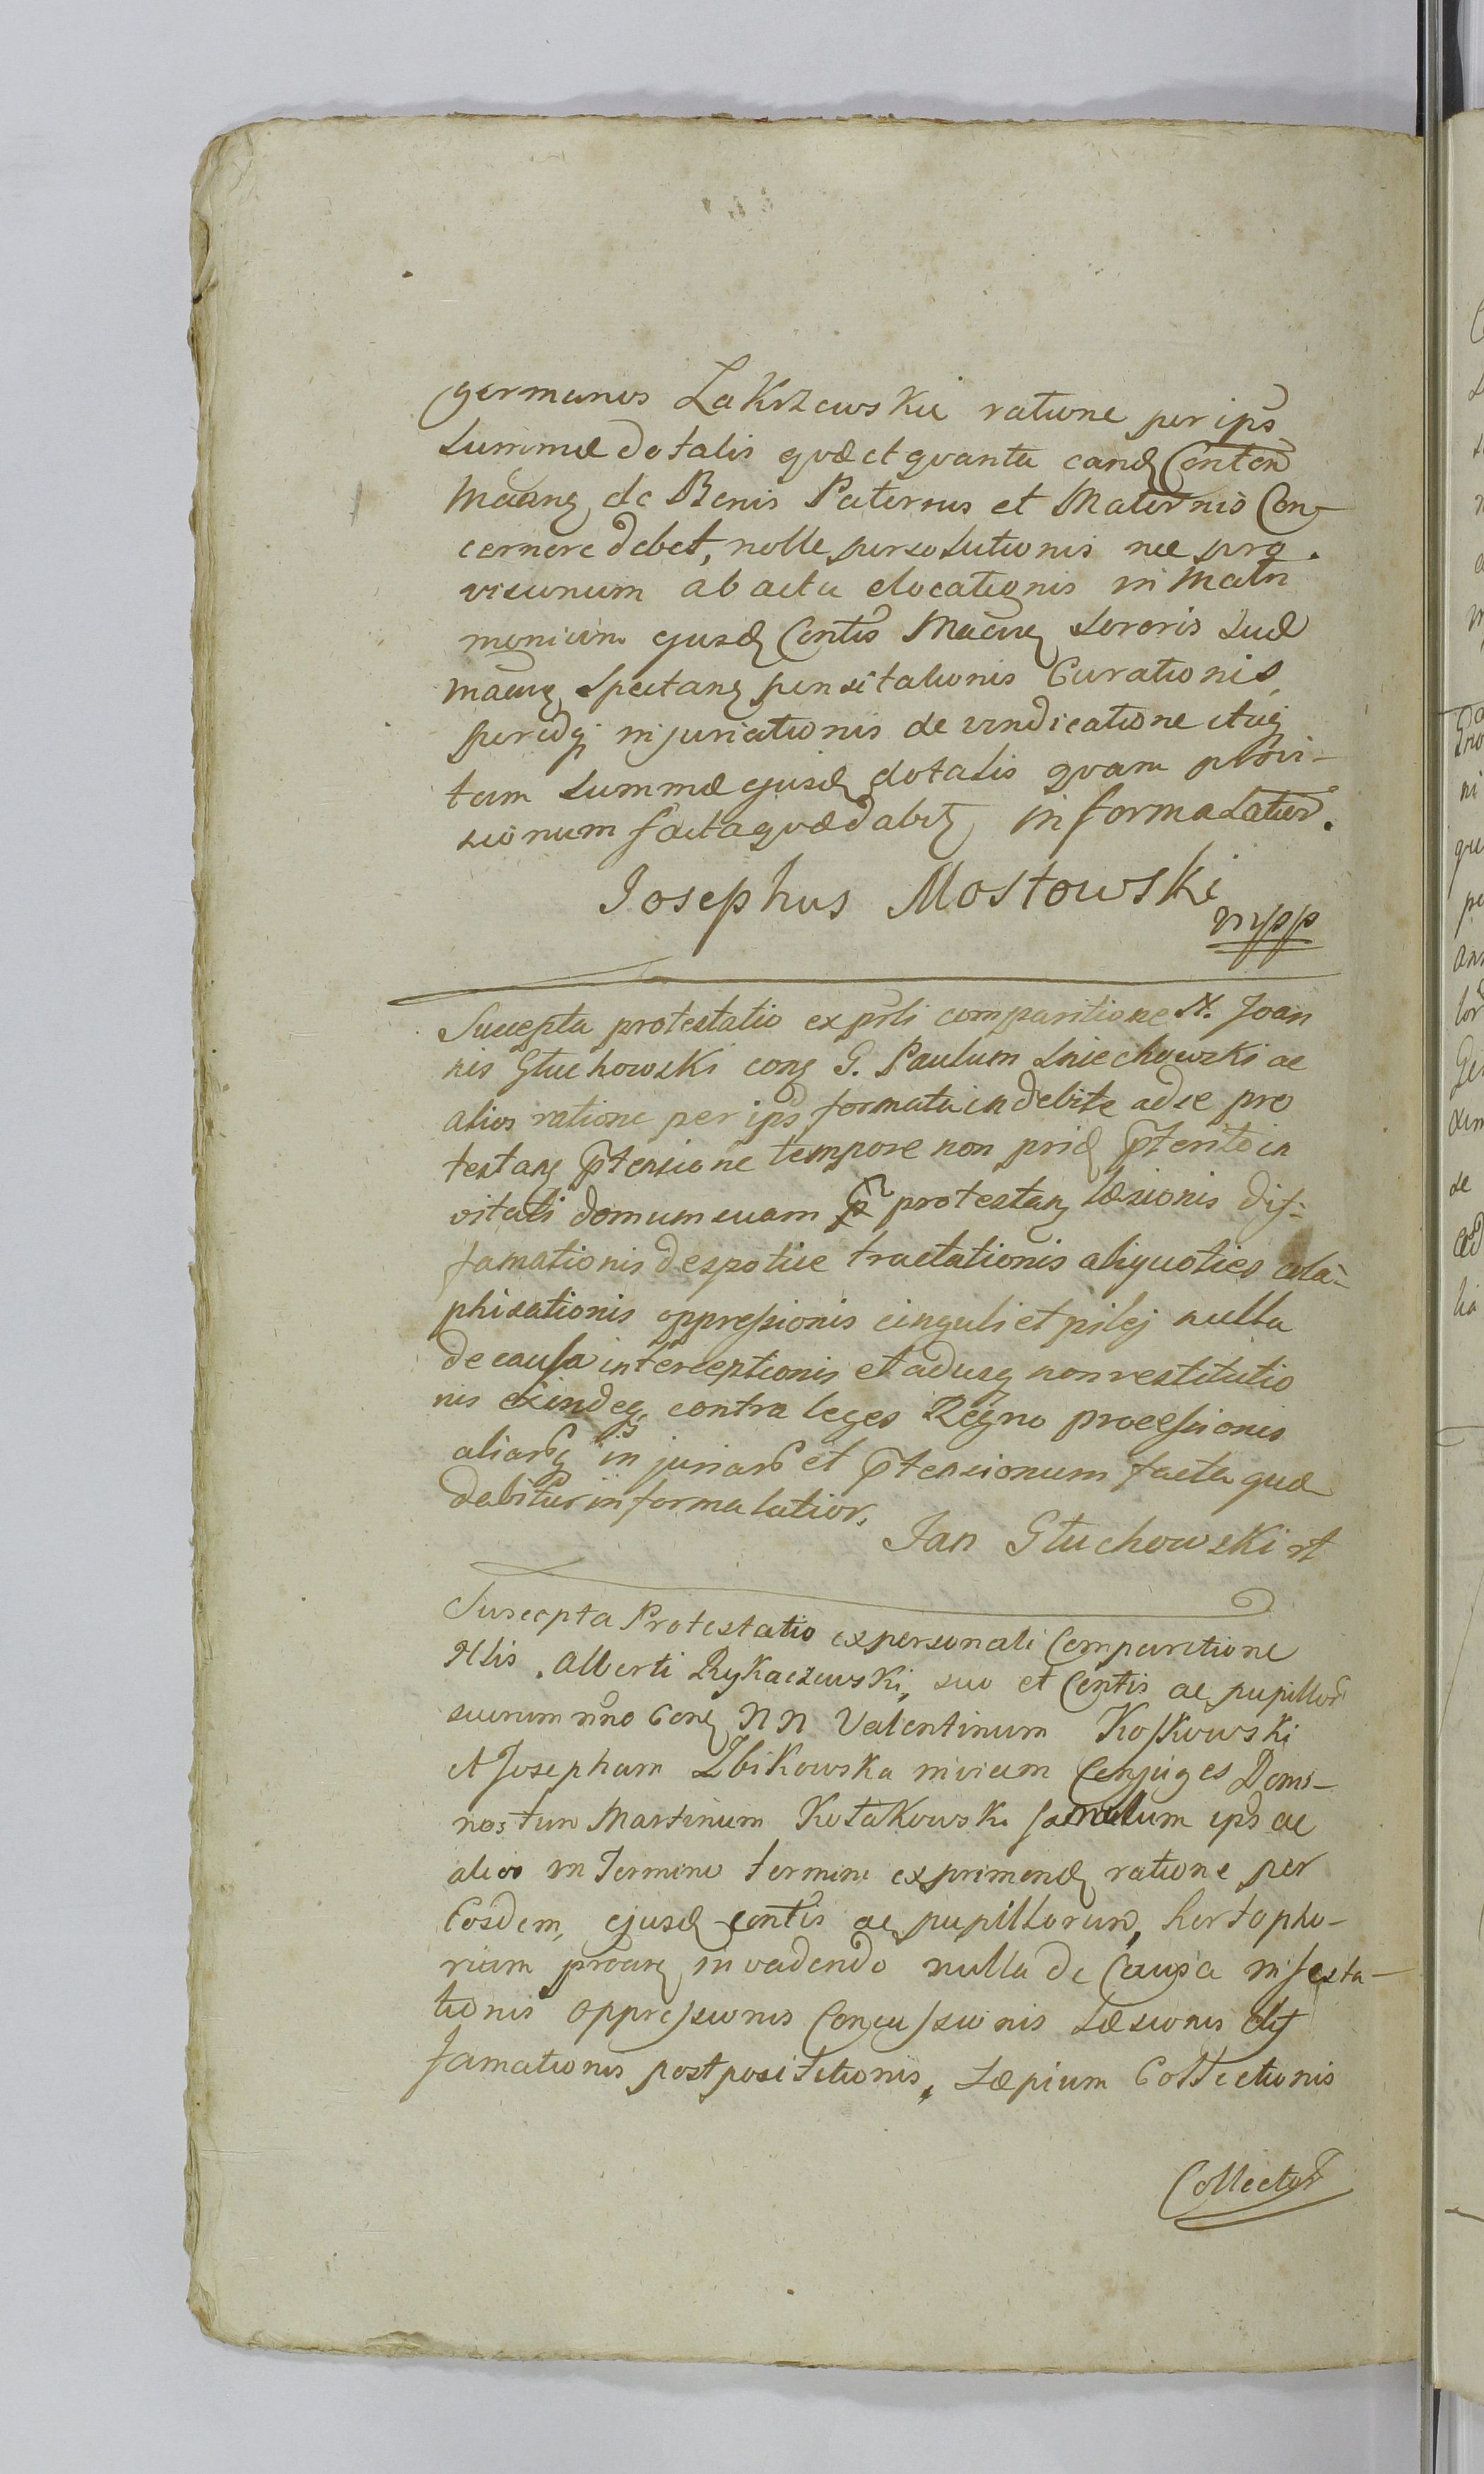 germanos Zakrzewskie ratione per ips
summæ dotalis qvæ et qvanta eand Conten
Maang de Bonis Paternis et Maternis Con-
cernere debet, nolle persolutionis nec pro.
visionum ab actu elocationis in Matri
monium ejusd Contis Maang sororis suæ
maang spectang pensitationis Curationis
peridq injuriationis de vindicatione itaq
tam summæ ejusd dotalis qvam provi-
sionum facta qvæ dabit in forma Latiori.
Josephus Mostowski
mpp
Suscepta protestatio ex prsli comparitione N. Joan
nis Głuchowski cong G. Paulum Sniechowski ac
alios ratione per ips formata indebite ad se pro
testang ptensione tempore non prid pterito in
vitati domum suam p protestang læsionis dif-
famationis despotice tractationis aliquoties cola-
phisationis oppressionis cinguli et pilej nulla
de causa interceptionis et adusq non restitutio
nis exindeq contra leges Regno processionis
aliarq injuriar et ptensionum facta quæ
dabitur in forma latior.
Jan Głuchowski rt
Suscepta Protestatio ex personali Comparitione
Nlis Alberti Rykaczewski, suo et Contis ac pupillor
suorum nno Cong NN Valentinum Koskowski
et Josepham Zbikowska invicem Conjuges Domi-
nos tum Martinum Kołakowski famulum ips ac
alios in Termino termini exprimend ratione per
Eosdem, ejusd contis ac pupillorum, hortopho-
rium proang invadendo nulla de Causa infesta-
tionis oppressionis Concussionis Læsionis dif
famationis postpositionis, Sæpium Collectionis
Collector